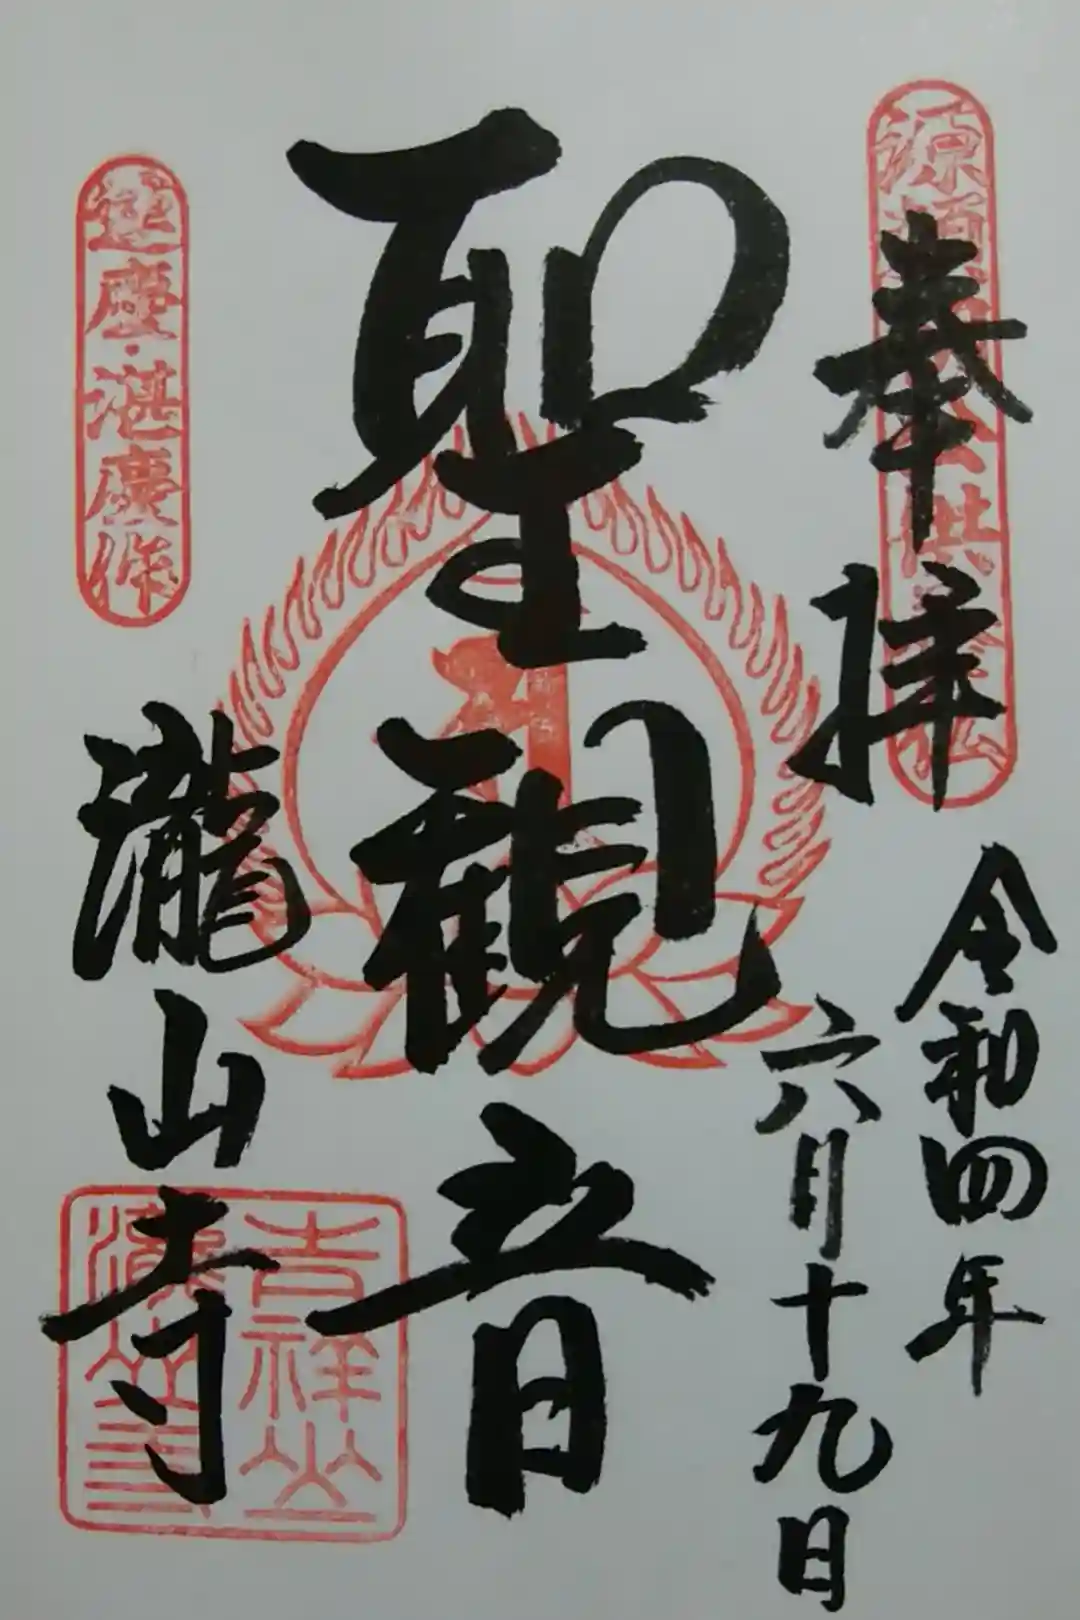 奉拝
令和四年
六月十九日
聖観音
瀧山寺
運慶・湛慶作
吉祥山
瀧山寺